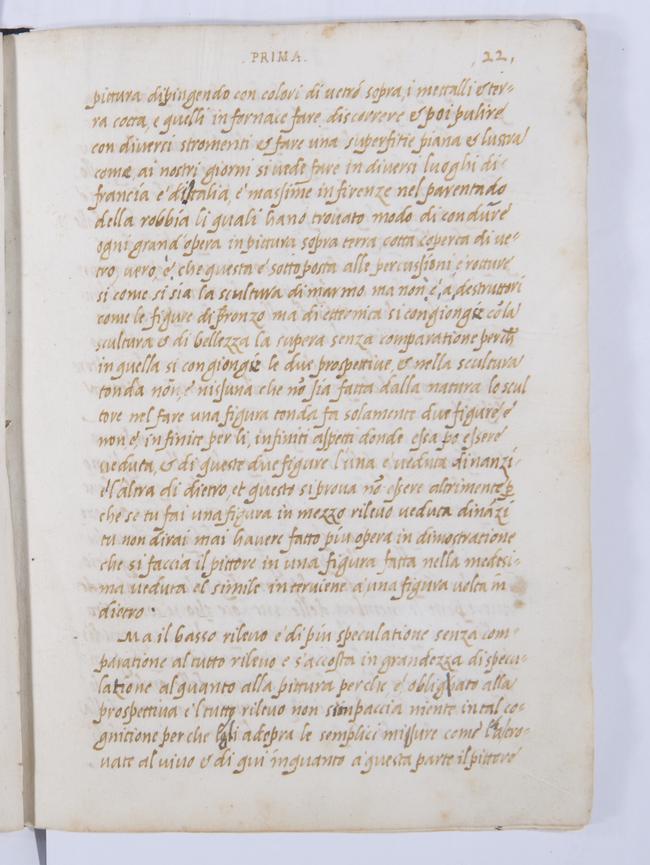 . PRIMA . 22,
pictura dipingendo con colori di vetro sopra, i mettalli & ter-
ra cotta, e quelli in fornace fare discorrere & poi pulire
con diversi stromenti & fare una superfitie piana & lustra
come ai nostri giorni si vede fare in diversi luoghi di
francia e d'Italia, e massime in firenze nel parentado
della robbia li quali hano trovato modo di condure
ogni grand'opera in pictura sopra terra cotta coperta di ve-
tro, vero, è, che questa é sottoposta alle percussioni e rotture
si come si sia la scultura di marmo ma non è, á, destruttori
come le figure di bronzo ma di etternica si congionge cō la
scultura & di bellezza la supera senza comparatione perch
in quella si congionge le due prospettive, & nella scultura
tonda non, è nissuna che nō sia fatta dalla natura lo scul
tore nel fare una figura tonda fa solamente due figure, e
non é, infinite per li, infiniti aspetti donde essa po essere
veduta, & di queste due figure l'una é veduta dinanzi
é l'altra di dietro, et questo si prova nō essere altrimente p̄
che se tu fai una figura in mezzo rilevo veduta dināzi
tu non dirai mai havere fatto piu opera in dimostratione
che si faccia il pittore in una figura fatta nella medesi-
ma veduta el simile interviene a una figura volta in
dietro .
Ma il basso rilevo é di piu speculatione senza com-
paratione al tutto rilevo e s'accosta in grandezza di specu-
latione alquanto alla pittura perche é obligato alla
prospettiva e'l tutto rilevo non s'impaccia niente in tal co-
gnitione per che egli adopra le semplici misure come l'ha tro-
vate al vivo & di qui inquanto a questa parte il pittore